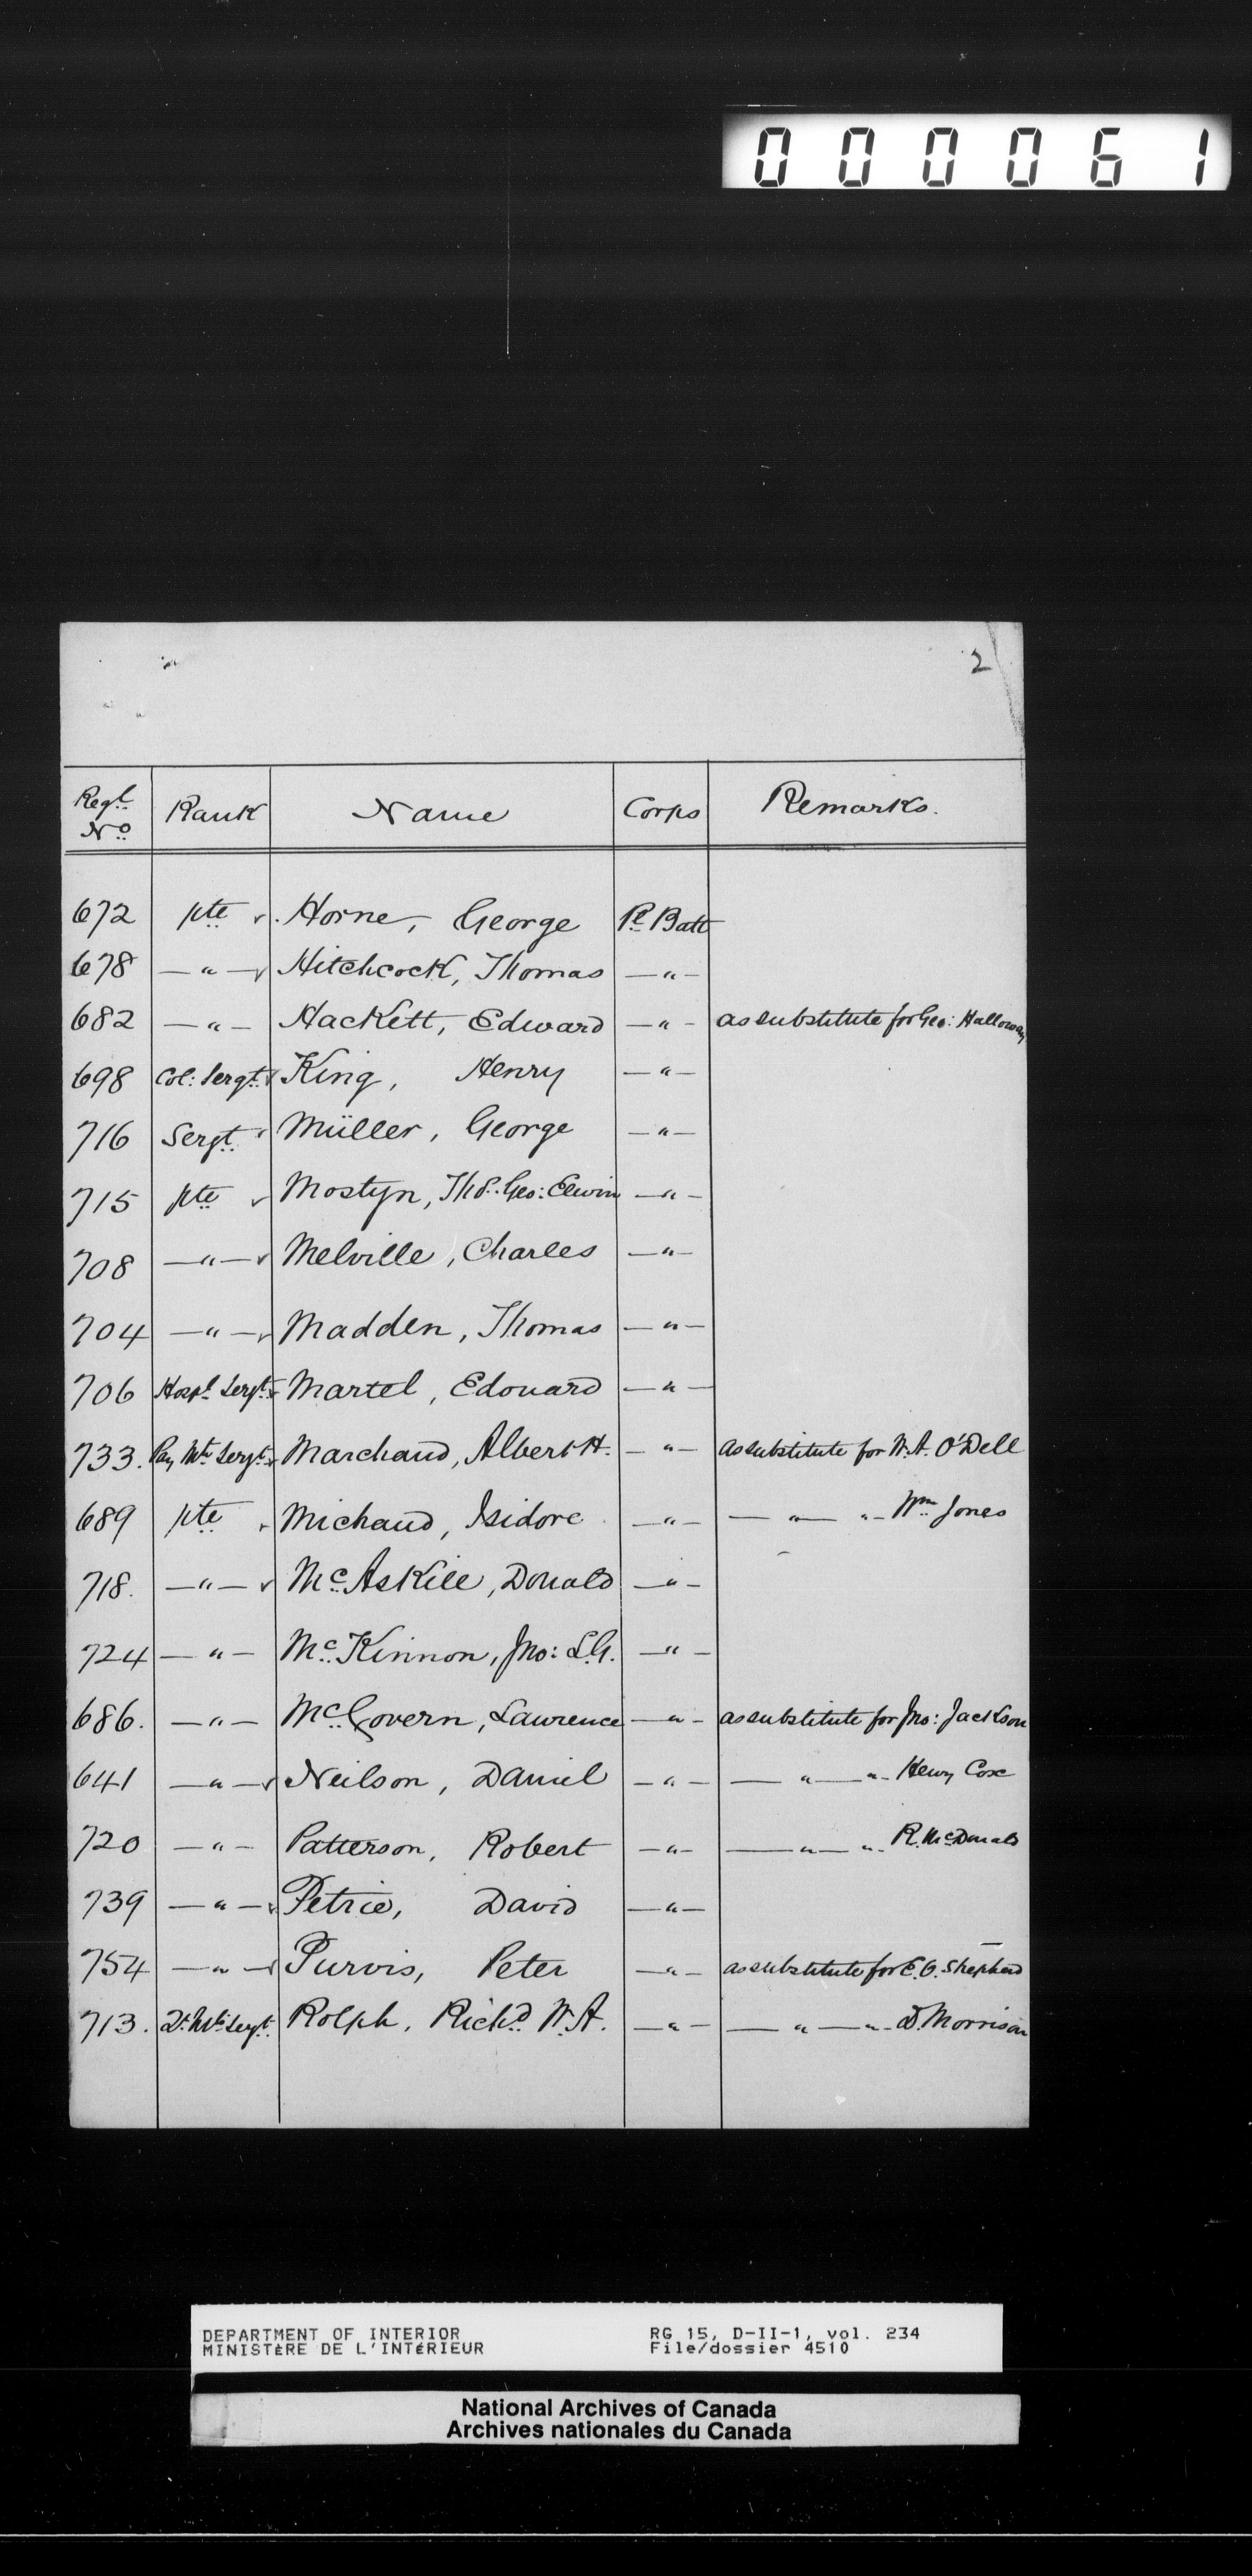 000061
2
Regl. No Rank Name Corps Remarks.
672 pte Horne, George Pl Batt
678 — " — Hitchcock, Thomas — " —
682 — " — Hackett, Edward — " — as substitute for Geo: Halloway
698 Col: Sergt. King, Henry — " —
716 Sergt. Müller, George — " —
715 pte Mostyn, Thos. Geo: Elwin — " —
708 — " — Melville, Charles — " —
704 — " — Madden, Thomas — " —
706 Hospl Sergt. Martel, Edouard — " —
733. Pay Mr. Sergt. Marchand, Albert H. — " — as substitute for W. A. O'Dell
689 pte Michaud, Isidore — " — — " — " — Wm Jones
718. — " — McAskill, Donald — " —
724 — " — McKinnon, Jno: L.G. — " —
686. — " — McGovern, Lawrence — " — as substitute for Jno: Jackson
641 — " — Neilson, Daniel — " — — " — " — Henry Cox
720 — " — Patterson, Robert — " — — " — " — R. McDonald
739 — " — Petrie, David — " —
754 — " — Purvis, Peter — " — as substitute for E. G. Shepherd
713. Qr. Mr. Sergt. Rolph, Richd. W. A. — " — — " — " — D. Morrison
DEPARTMENT OF INTERIOR RG 15, D-II-1, vol. 234
MINISTÈRE DE L'INTÉRIEUR File/dossier 4510
National Archives of Canada
Archives nationales du Canada